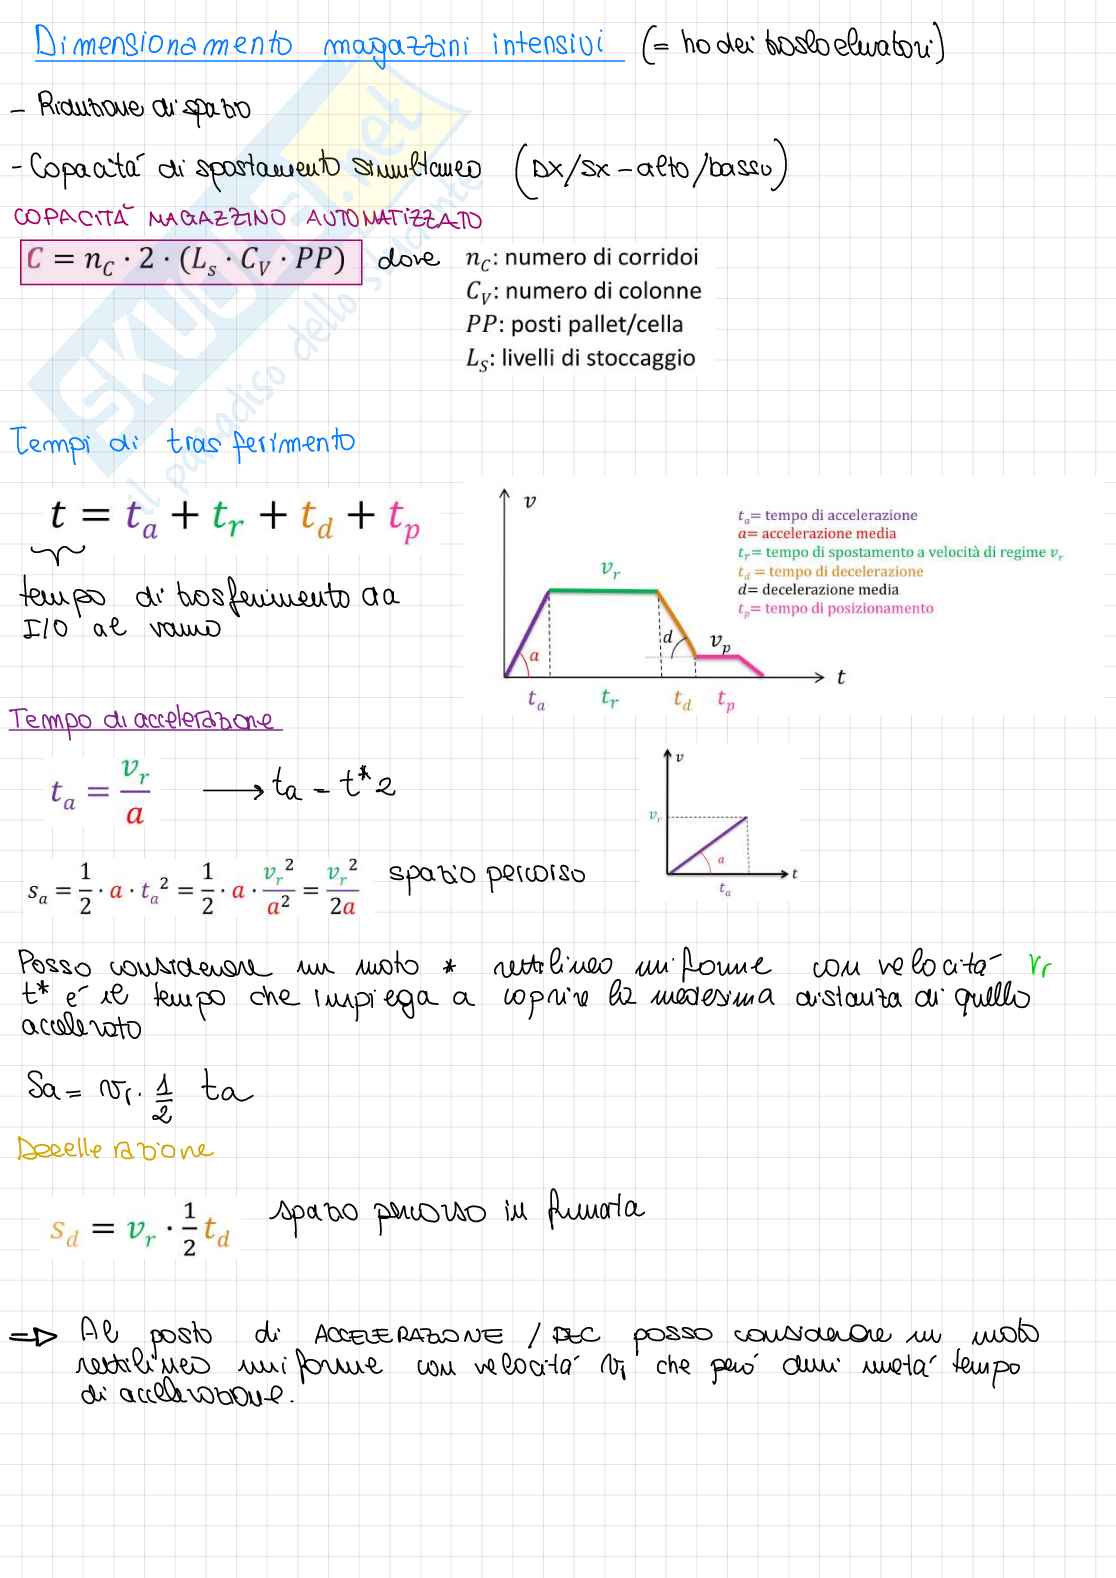 Dimensionamento magazzini intensivi (= ho dei trasloelevatori)
- Riduzione di spazio
- Capacità di spostamento simultaneo (Dx/Sx - alto/basso)
CAPACITÀ MAGAZZINO AUTOMATIZZATO
C = n_C · 2 · (L_s · C_V · PP) dove n_C: numero di corridoi
C_V: numero di colonne
PP: posti pallet/cella
L_S: livelli di stoccaggio
SKUOLA.net
il paradiso dello studente
Tempi di trasferimento
t = t_a + t_r + t_d + t_p
tempo di trasferimento da
I/O al vano
v
t_a= tempo di accelerazione
a= accelerazione media
t_r= tempo di spostamento a velocità di regime v_r
t_d = tempo di decelerazione
d= decelerazione media
t_p= tempo di posizionamento
v_r
a
d
v_p
t
t_a t_r t_d t_p
Tempo di accelerazione
t_a = v_r / a → t_a = t* 2
v
v_r
a
t
t_a
s_a = 1/2 · a · t_a² = 1/2 · a · v_r²/a² = v_r²/2a spazio percorso
Posso considerare un moto * rettilineo uniforme con velocità v_r
t* è il tempo che impiega a coprire la medesima distanza di quello
accelerato
Sa = v_r · 1/2 ta
Decellerazione
s_d = v_r · 1/2 t_d spazio percorso in frenata
⇒ Al posto di ACCELERAZIONE / DEC posso considerare un moto
rettilineo uniforme con velocità v_r che però duri metà tempo
di accelerazione.